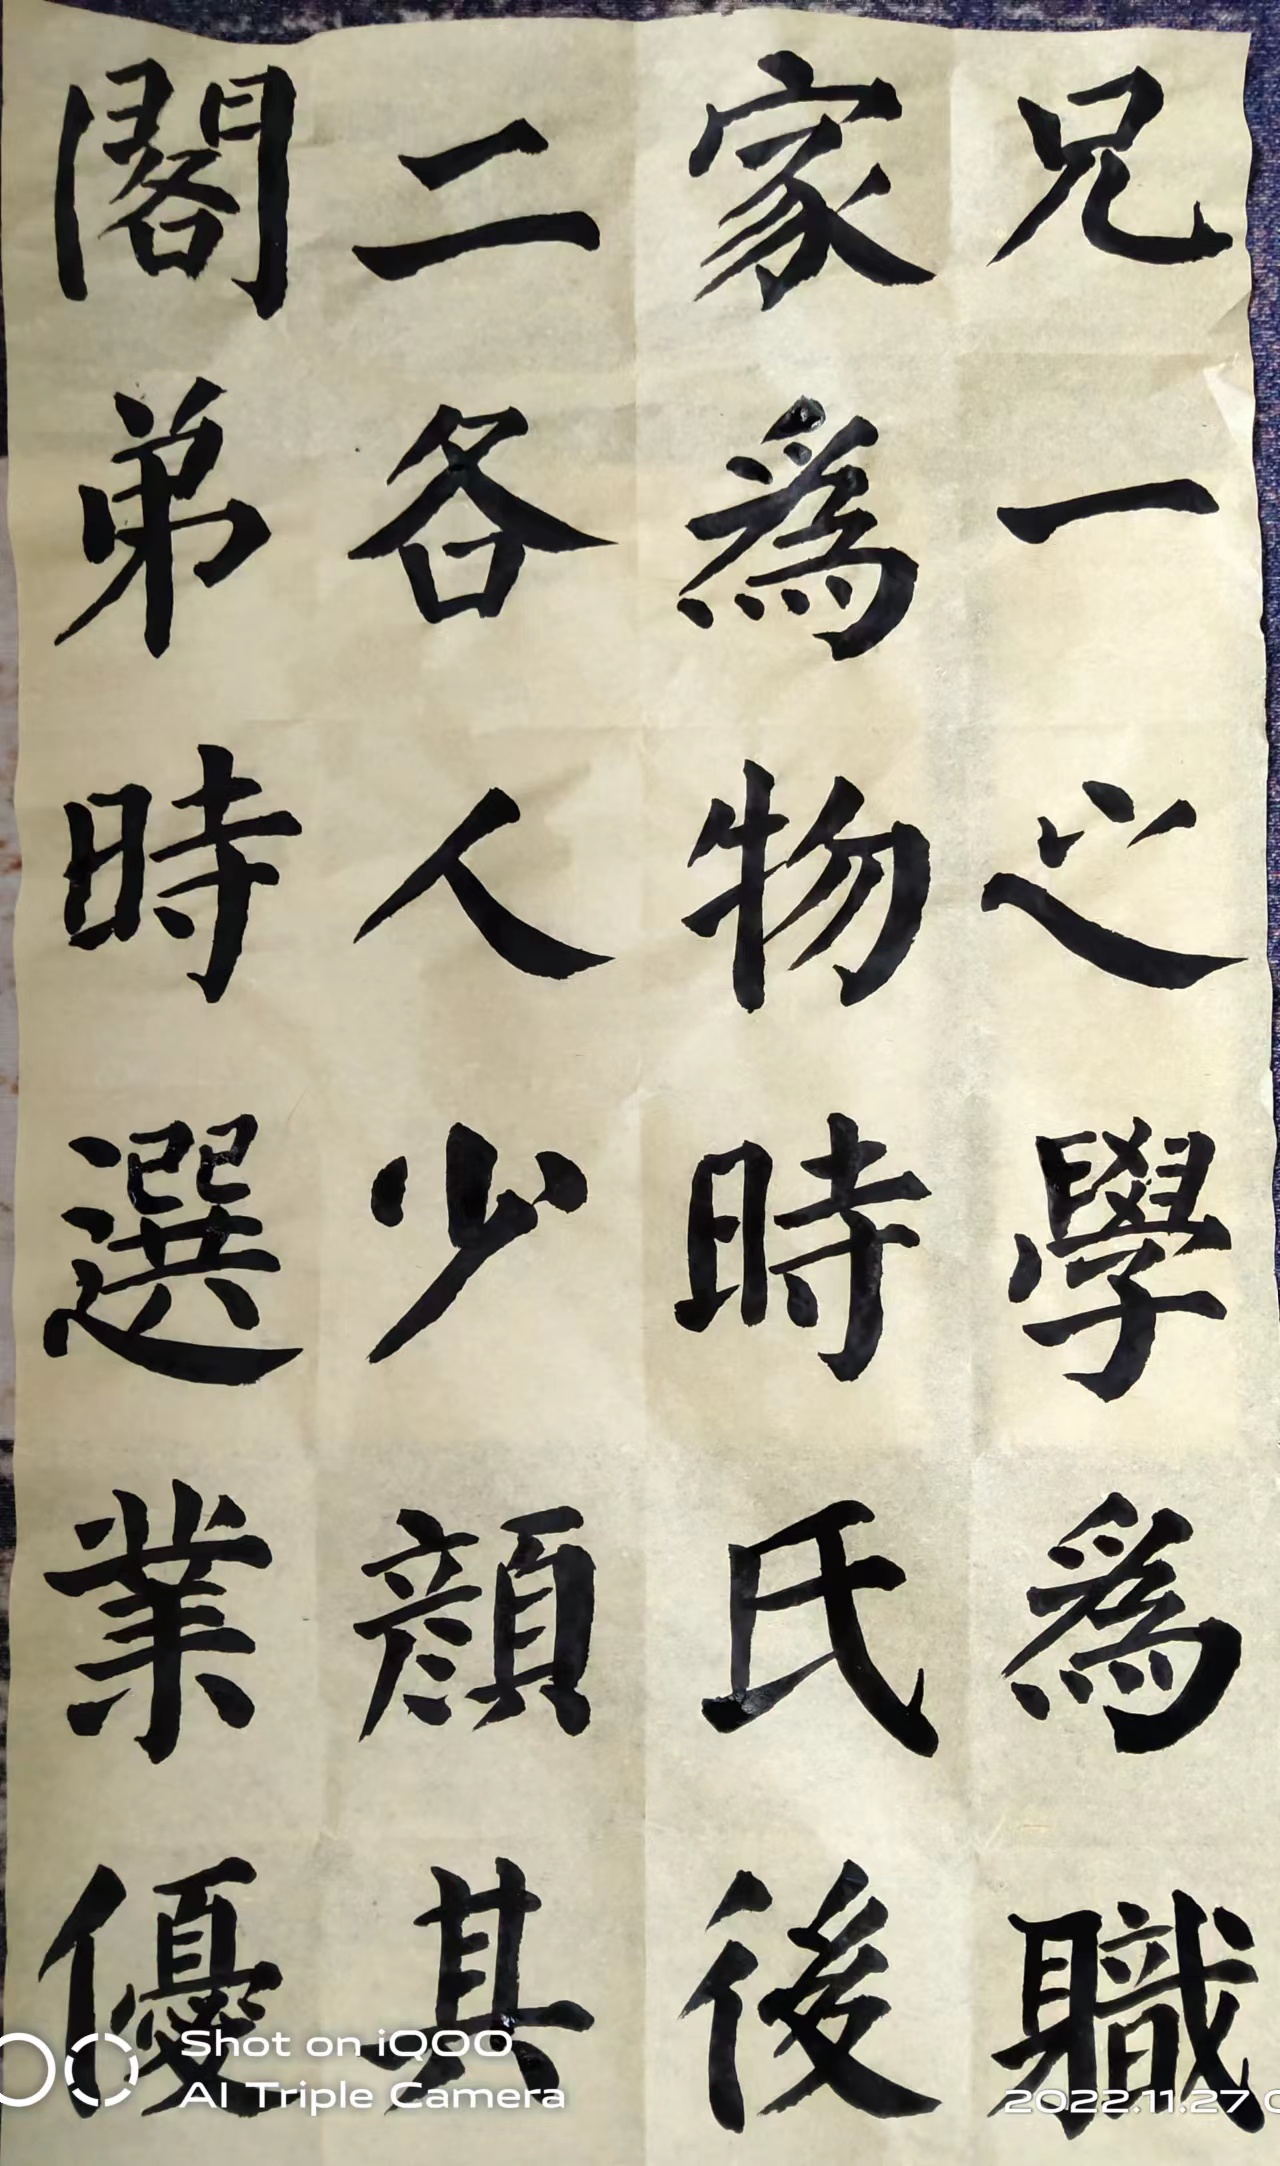 兄一之學爲職
家爲物時氏後
二各人少顔其
閣弟時選業優
Shot on iQOO
AI Triple Camera
2022.11.27